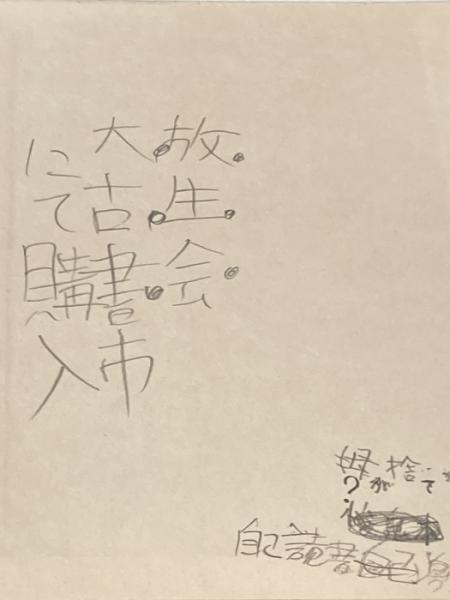 放生会
大古書市
にて購入
母が捨て
自己読書